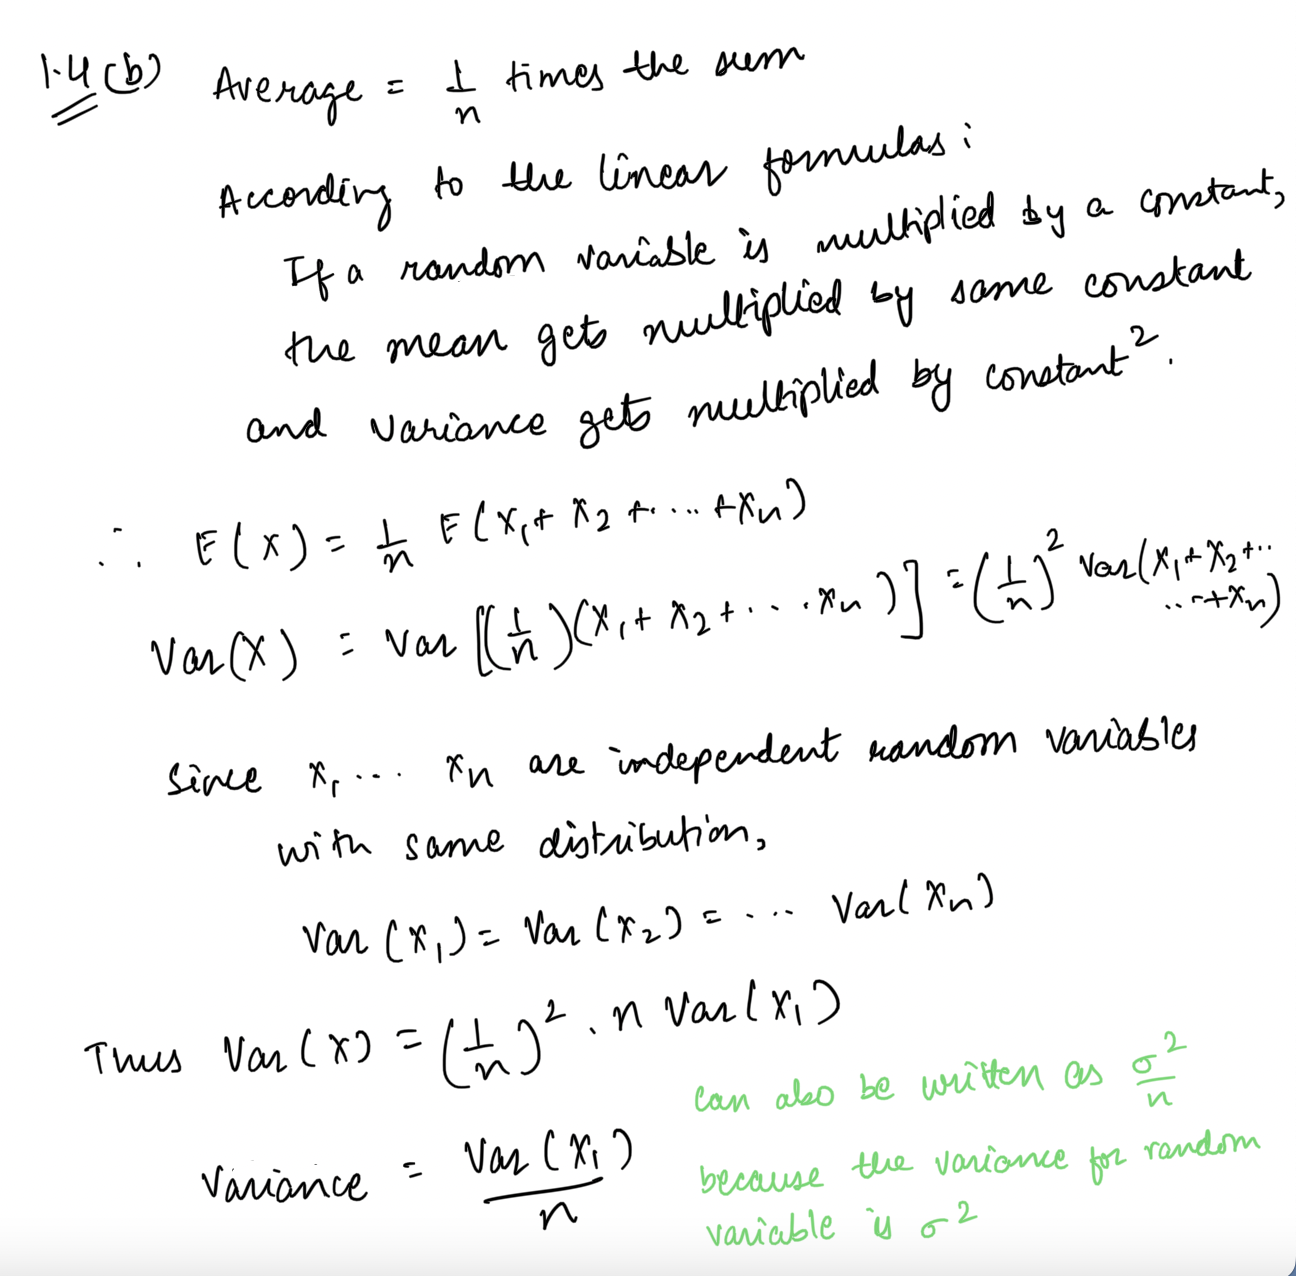 1.4 (b) Average = 1/n times the sum
According to the linear formulas :
If a random variable is multiplied by a constant,
the mean gets multiplied by same constant
and variance gets multiplied by constant².
∴ E(X) = 1/n E(X₁+ X₂ +. ... +Xₙ)
Var(X) = Var [(1/n)(X₁+ X₂ + . . . . Xₙ)] = (1/n)² Var(X₁+X₂+..
...+Xₙ)
Since X₁ ... Xₙ are independent random variables
with same distribution,
Var (X₁) = Var (X₂) = . ... Var(Xₙ)
Thus Var(X) = (1/n)² . n Var(X₁)
can also be written as σ²/n
Variance = Var(X₁)/n
because the variance for random
variable is σ²